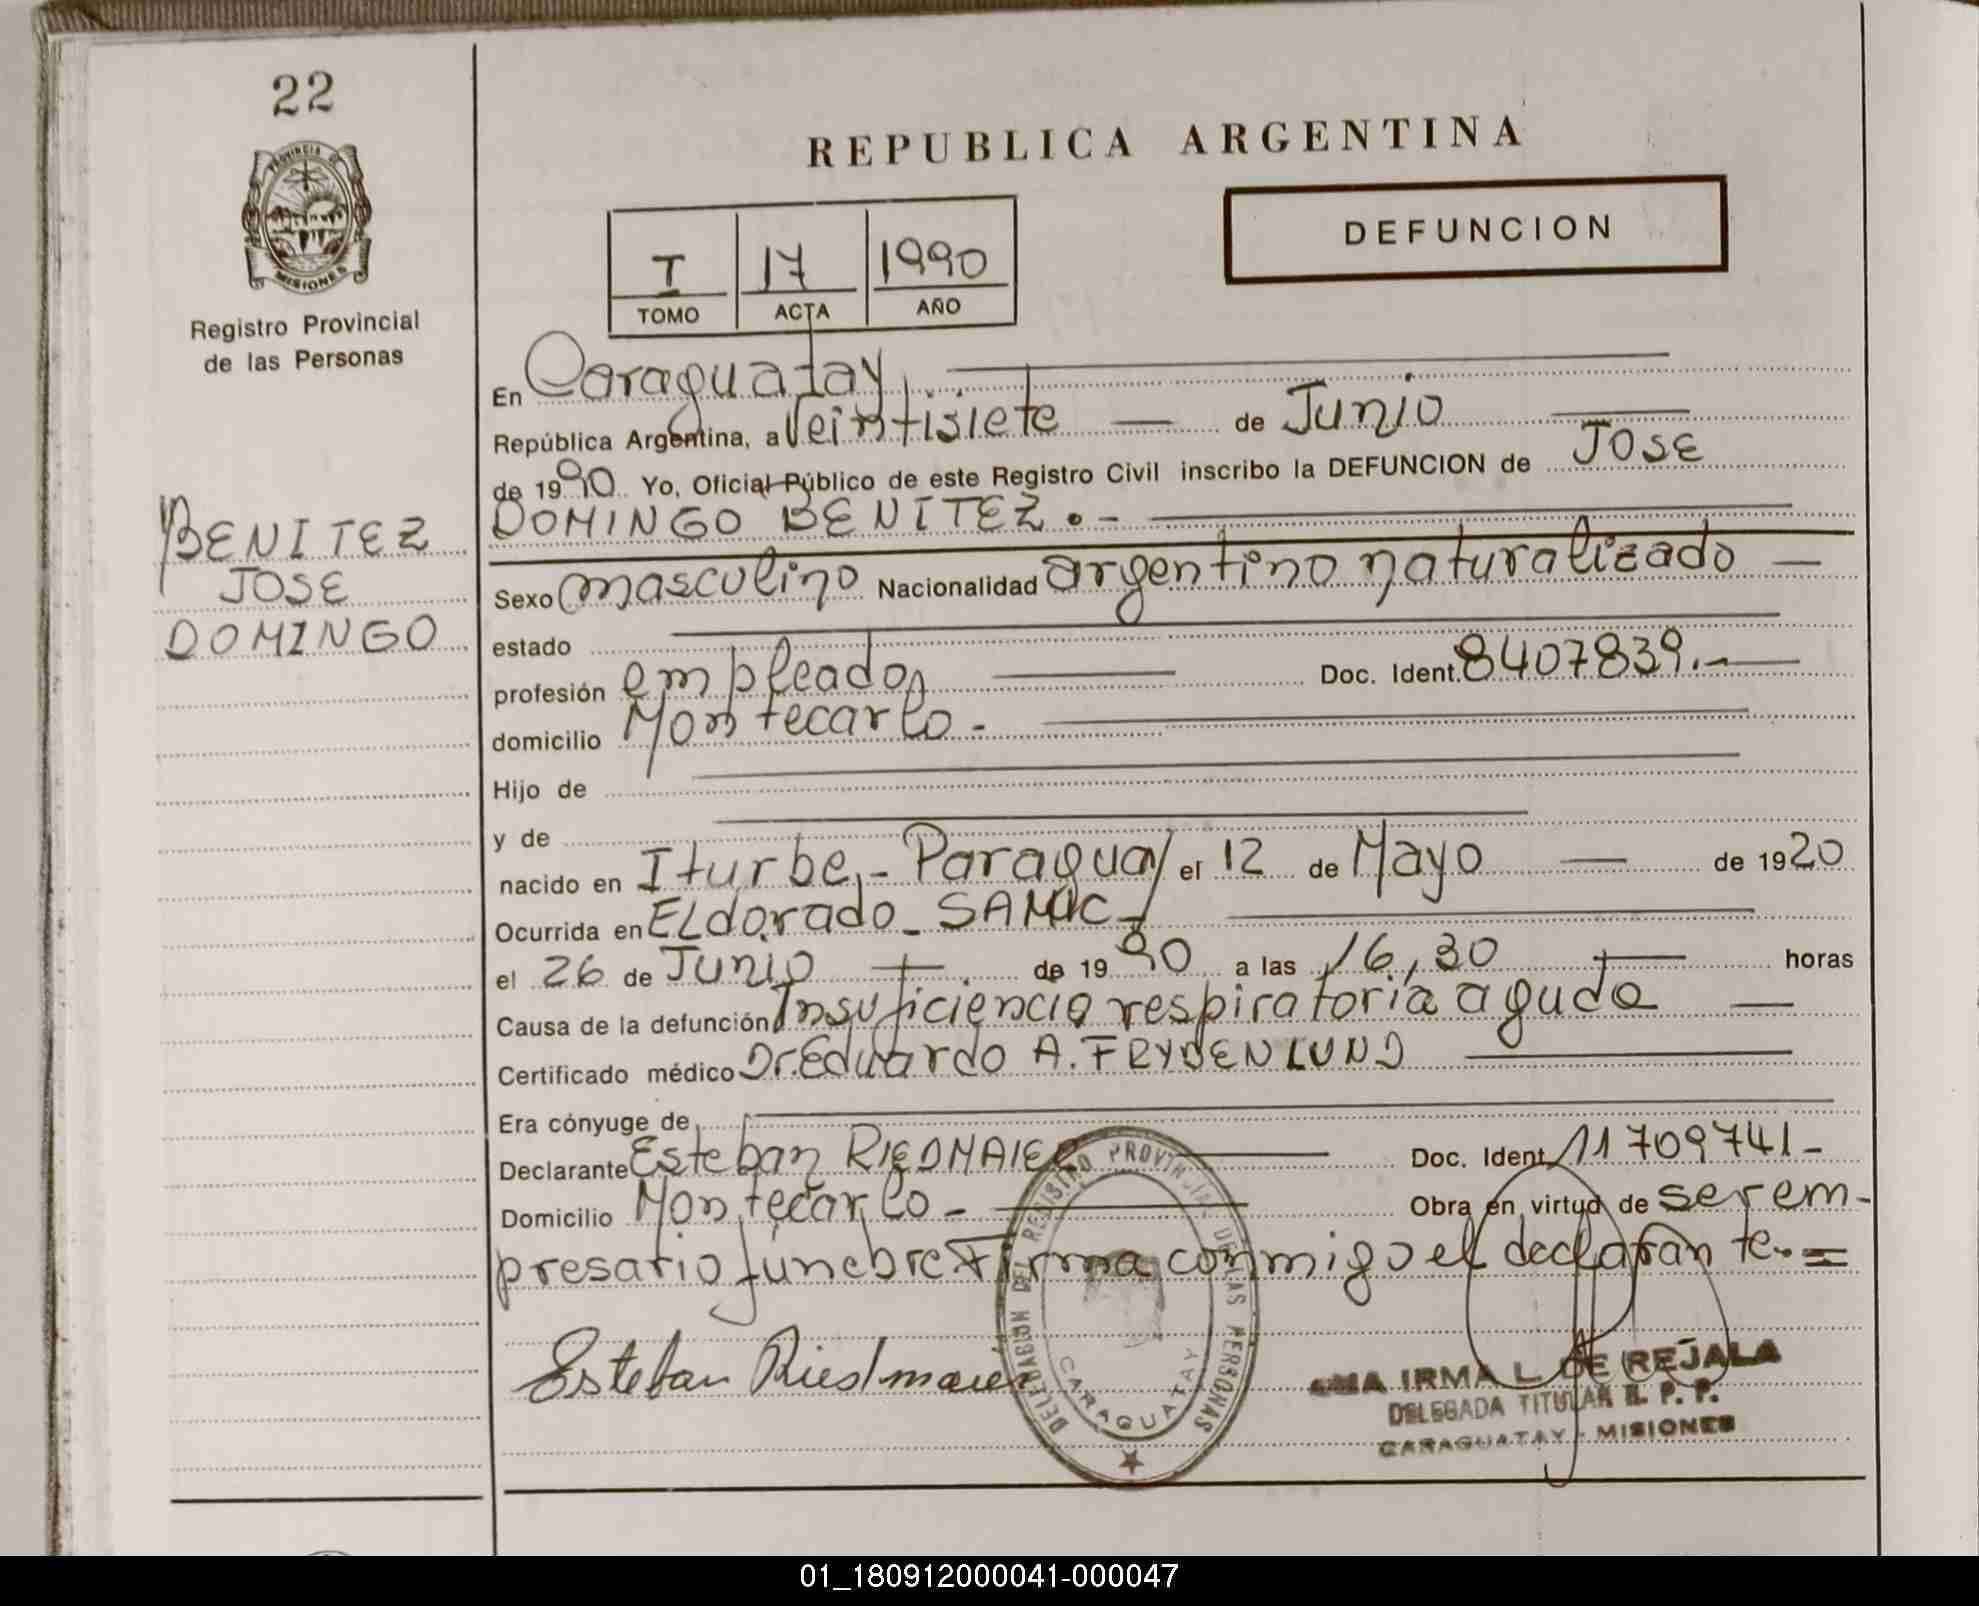 22
PROVINCIA DE
MISIONES
Registro Provincial
de las Personas
BENITEZ
JOSE
DOMINGO
REPUBLICA ARGENTINA
DEFUNCION
I 17 1990
TOMO ACTA AÑO
En Caraguatay,
República Argentina, a Veintisiete — de Junio —
de 1990 Yo, Oficial Público de este Registro Civil inscribo la DEFUNCION de JOSE
DOMINGO BENITEZ.-
Sexo masculino Nacionalidad argentino naturalizado —
estado
profesión empleado — Doc. Ident. 8407839.-
domicilio Montecarlo-
Hijo de
y de
nacido en Iturbe,- Paraguay el 12 de Mayo — de 1920
Ocurrida en ELdorado_ SAMIC-
el 26 de Junio — de 1990 a las 16,30 — horas
Causa de la defunción Insuficiencia respiratoria aguda —
Certificado médico Dr. Eduardo A. FRYDENLUND
Era cónyuge de
Declarante Esteban RIEDMAIER — Doc. Ident. 11709741-
Domicilio Montecarlo- Obra en virtud de ser em-
presario fúnebre Firma conmigo el declarante.=
Esteban Riedmaier
DELEGACION DEL REGISTRO PROVINCIAL DE LAS PERSONAS
CARAGUATAY
IRMA L. DE REJALA
DELEGADA TITULAR R. P. P.
CARAGUATAY - MISIONES
01_180912000041-000047